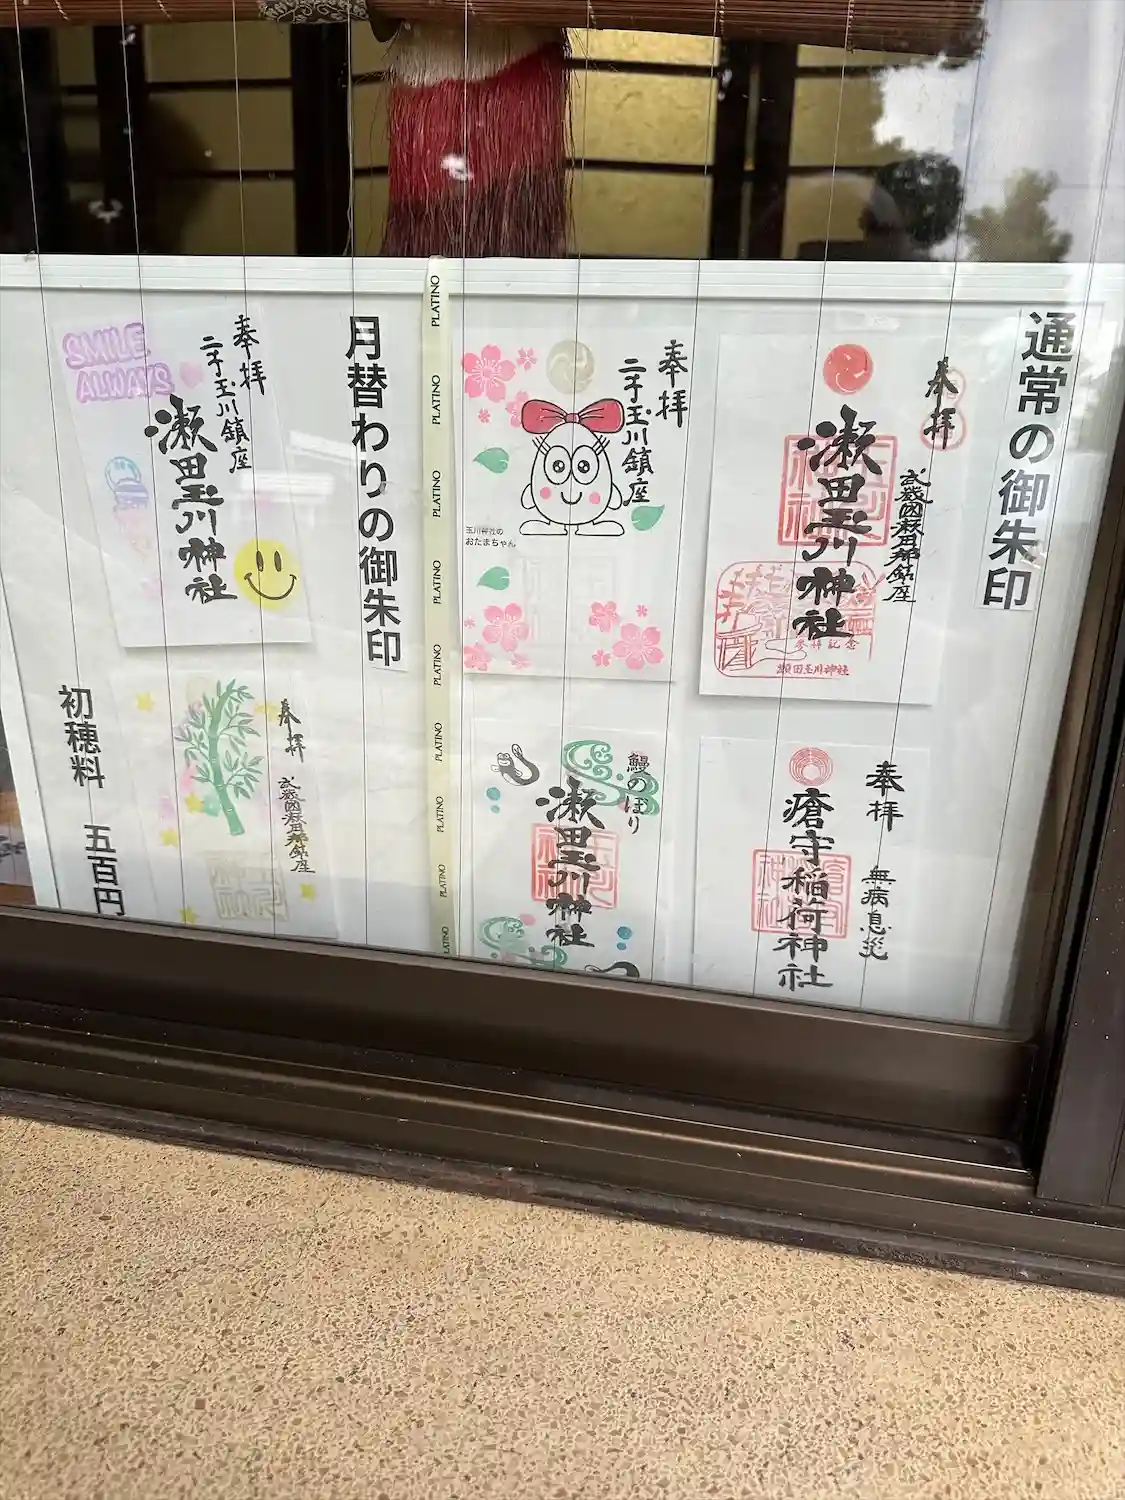 通常の御朱印
奉拝
武蔵国荏原郡鎮座
瀬田玉川神社
参拝記念
瀬田玉川神社
奉拝
無病息災
瘡守稲荷神社
奉拝
二子玉川鎮座
玉川神社の
おたまちゃん
鰻のぼり
瀬田玉川神社
PLATINO
PLATINO
PLATINO
PLATINO
PLATINO
PLATINO
PLATINO
PLATINO
PLATINO
月替わりの御朱印
奉拝
二子玉川鎮座
瀬田玉川神社
SMILE
ALWAYS
奉拝
武蔵国荏原郡鎮座
初穂料 五百円